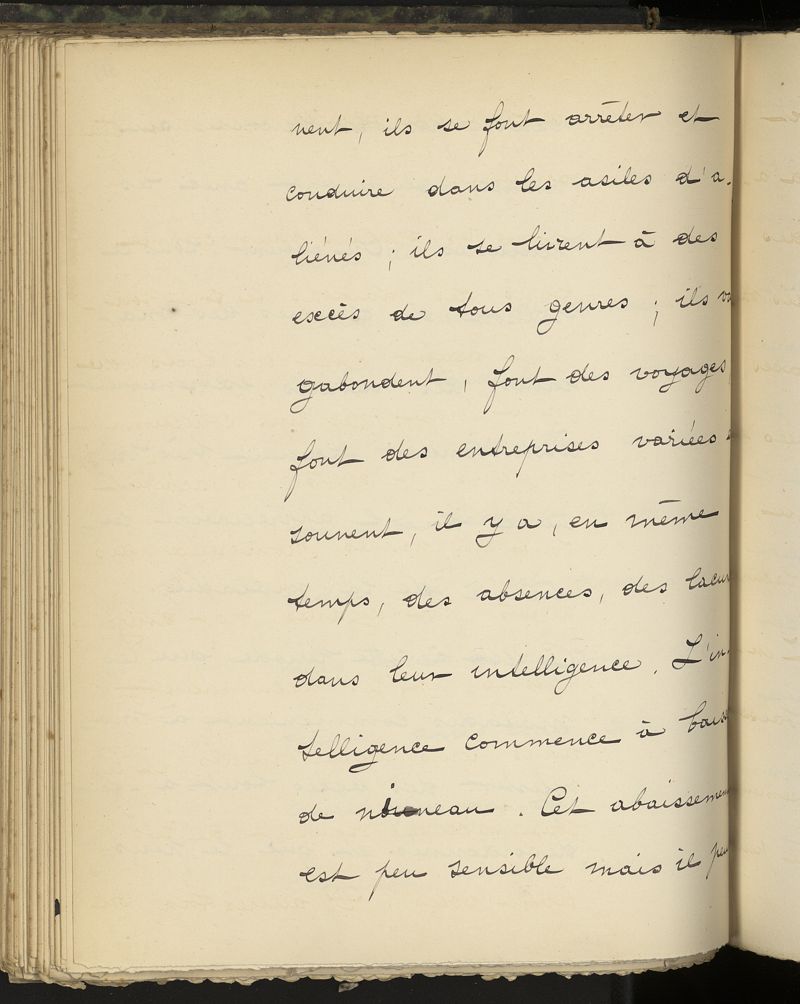 nent, ils se font arrêter et
conduire dans les asiles d'a-
liénés ; ils se livrent à des
excès de tous genres ; ils va
gabondent, font des voyages,
font des entreprises variées
souvent, il y a, en même
temps, des absences, des lacun
dans leur intelligence. L'in-
telligence commence à baiss
de niveau. Cet abaissemen
est peu sensible mais il peu